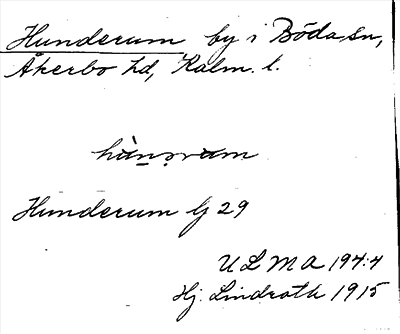 Hunderum by i Böda sn,
Åkerbo hd, Kalm. l.
hùnərum
Hunderum Lj 29
ULMA 194:4
Hj. Lindroth 1915